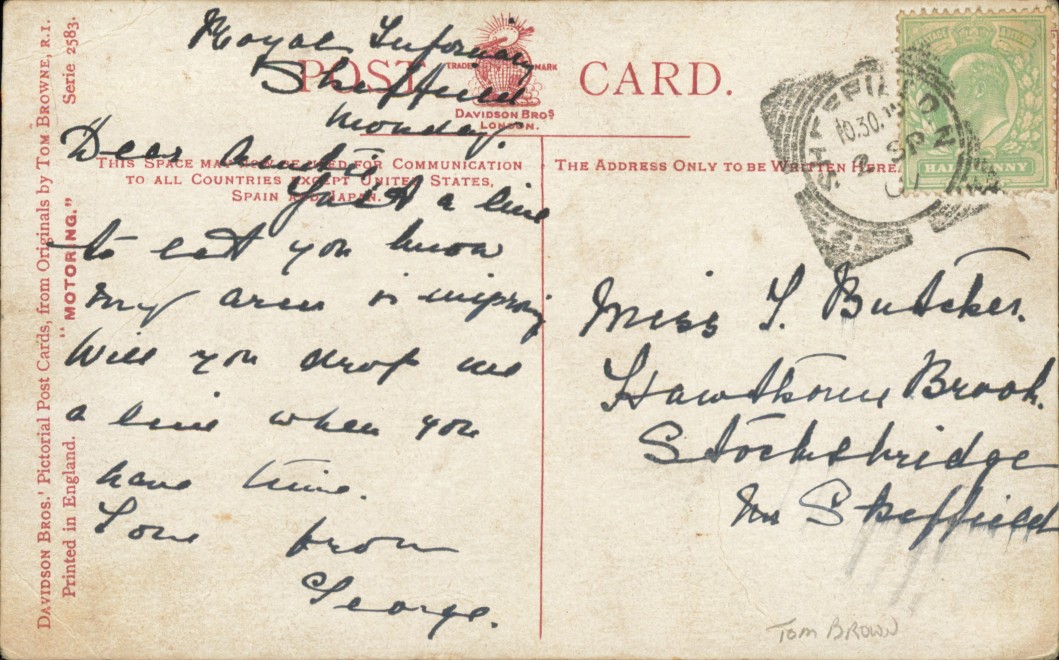 DAVIDSON BROS.' Pictorial Post Cards, from Originals by TOM BROWNE, R.I.
"MOTORING." Serie 2583.
Printed in England.
POST CARD.
TRADE MARK
DAVIDSON BROS.
LONDON.
THIS SPACE MAY BE USED FOR COMMUNICATION
TO ALL COUNTRIES EXCEPT UNITED STATES,
SPAIN AND JAPAN.
THE ADDRESS ONLY TO BE WRITTEN HERE
Royal Infirmary
Sheffield
Monday.
Dear Auntie
Just a line
to let you know
my arm is
Will you drop me
a line when you
have time.
Love from
George.
Miss Butcher.
Hawthorne Brook.
Stocksbridge
Nr Sheffield
SHEFFIELD
10.30
SP
HALFPENNY
TOM BROWN